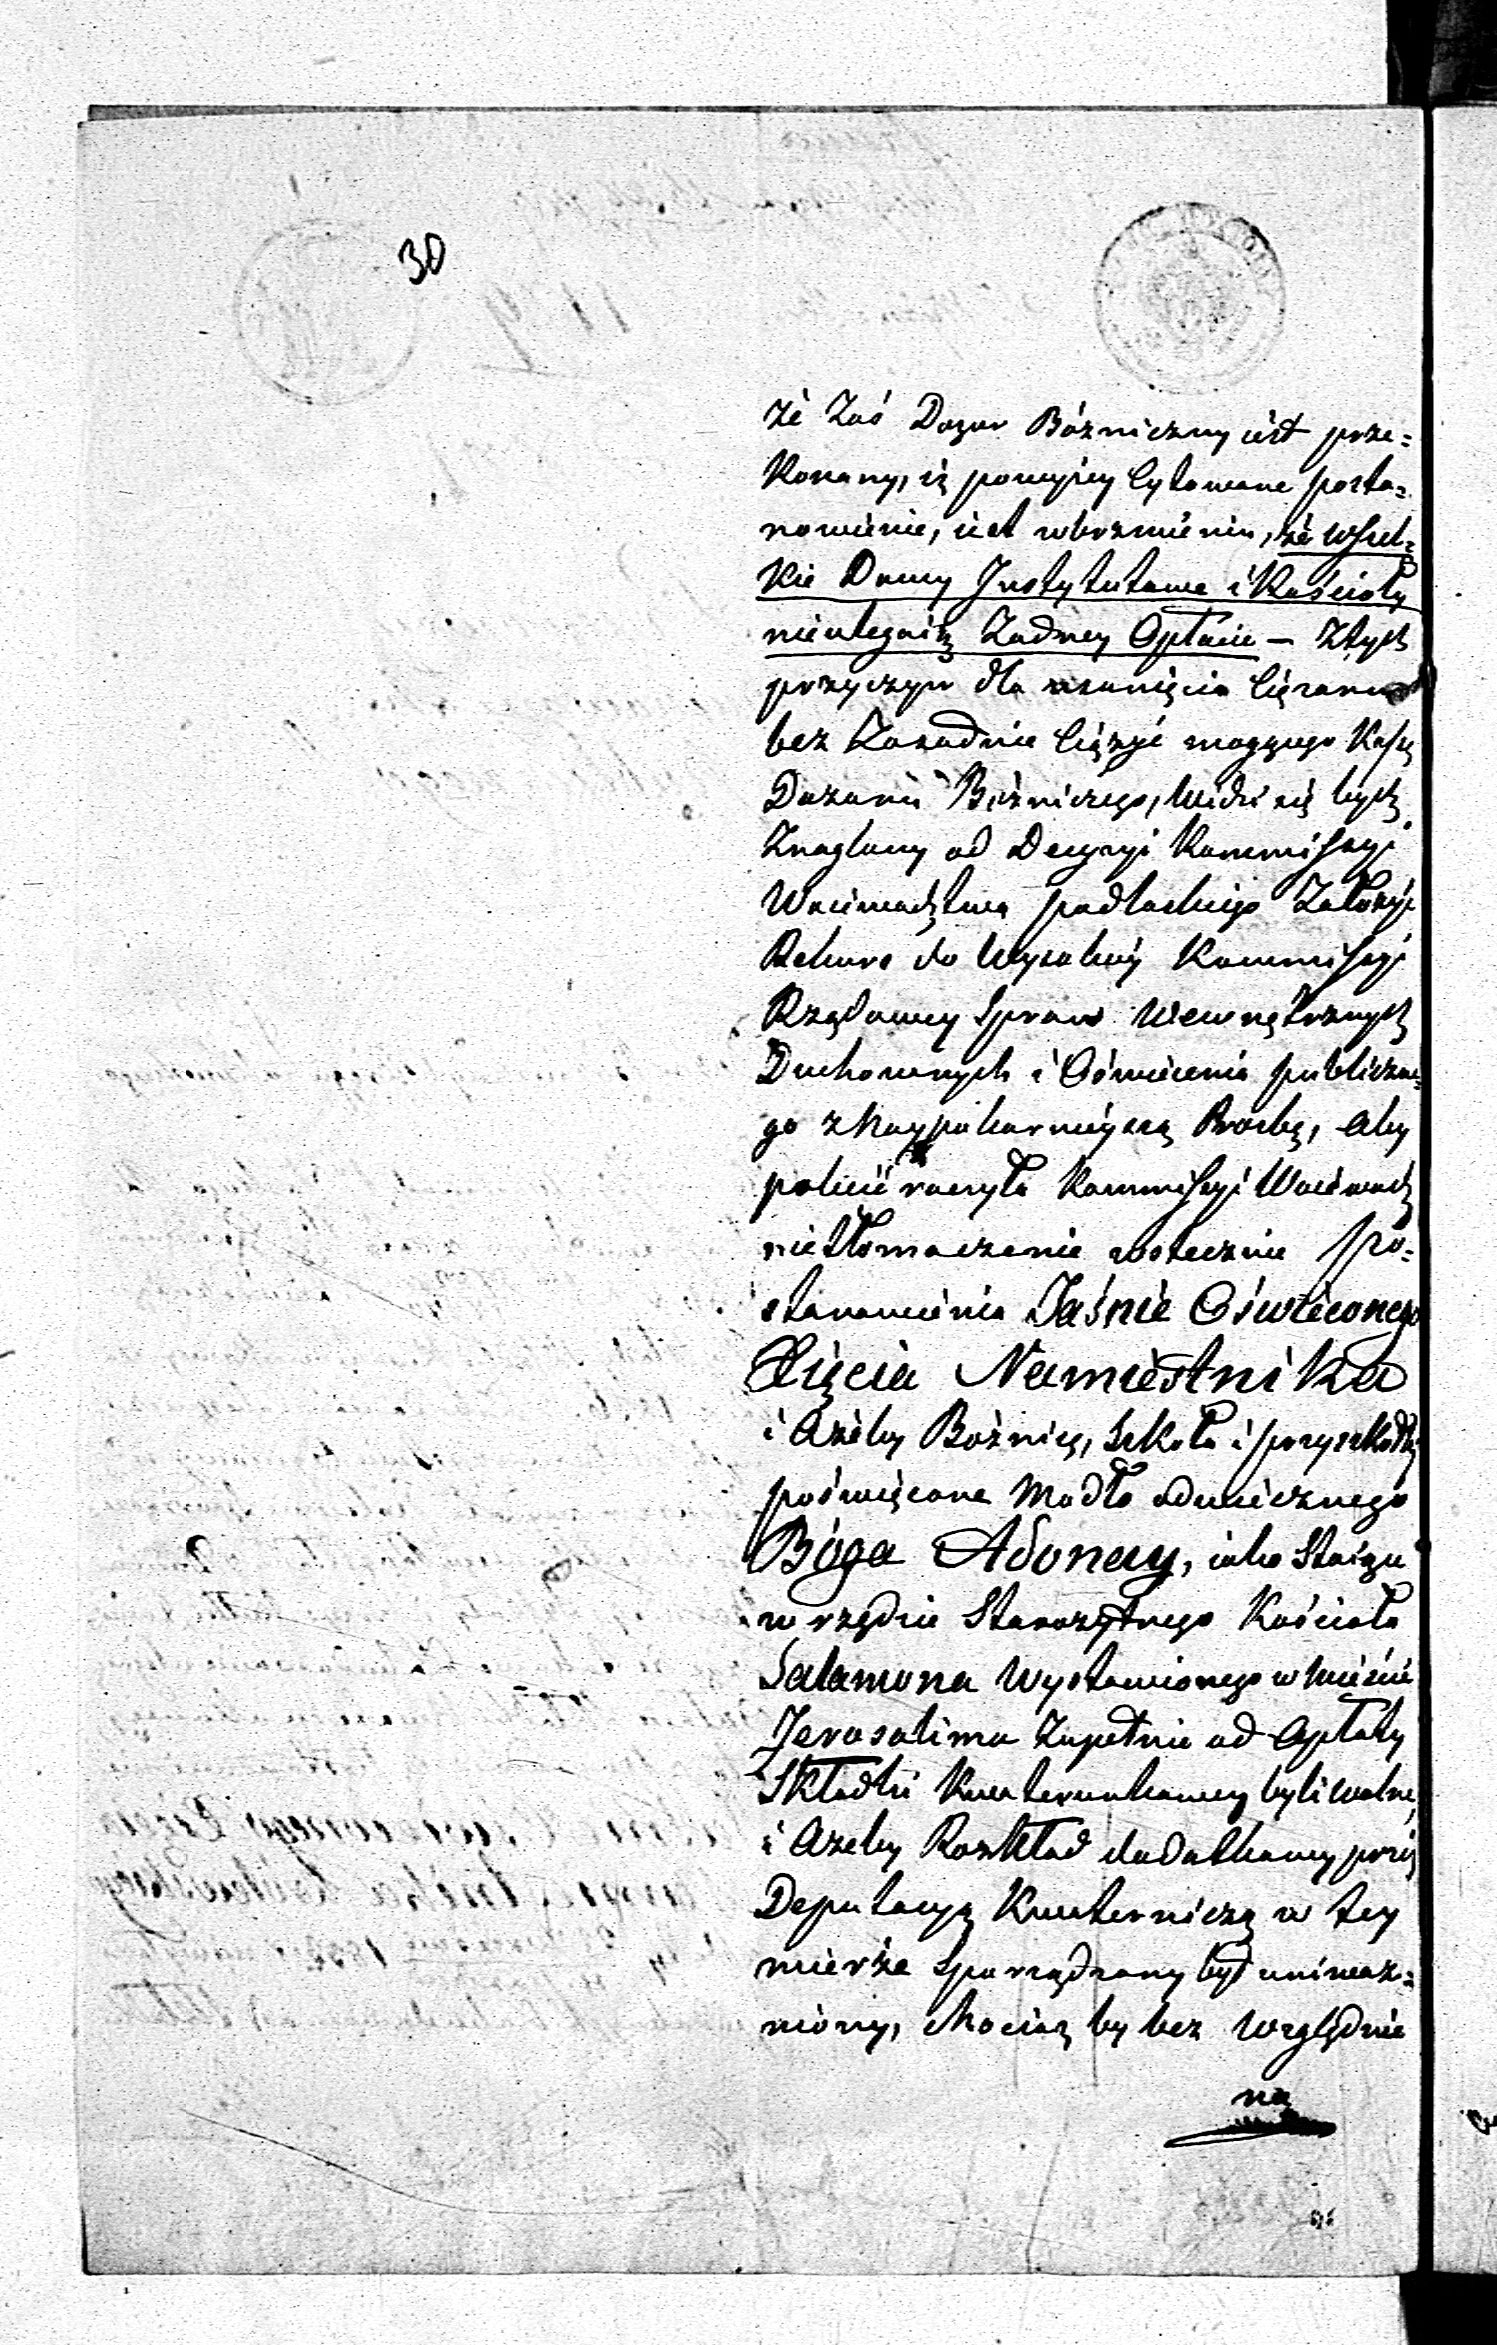 30
że Zaś Dozor Bóżniczny iest prze=
konany, iż powyżey Cytowane posta=
nowienie, iest wbrzmieniu, że wszel=
kie Domy Instytutowe i Kościoły
nieulegaią Żadney Opłacie — Ztych
przyczyn dla usunięcia Ciężaru
bez Zasadnie Ciążyć mogącego Kassę
Dozoru Bóżniczego, Widzi się bydź
Znaglony od Decyzyi Kommissyi
Woiewodztwa podlaskiego Założyć
Rekurs do Wysokiey Kommissyi
Rządowey Spraw Wewnętrznych
Duchownych i Oświecenia publiczne=
go z Naypokornieyszą Prozbą, aby
polecić raczyła Kommissyi Woiewodz
nietłomaczenie wstecznie po=
stanowienia Jaśnie Oświeconego
Xięcia Namiestnika
i Ażeby Bożnicę, Szkoła i przyszkołki
poświęcone Modło odwiecznego
Boga Adonay, iako Stoiące
w rzędzie Starożytnego Kościoła
Salamona Wystawionego w Mieście
Jerosolima Zupełnie od Opłaty
Składki Kwaterunkowey byli wolne,
i Azeby Rozkład dodatkowy przez
Deputacyą Kwaterniczą w tey
mierze Sporządzony był uniewaz=
niony, chociaż by bez względnie
na